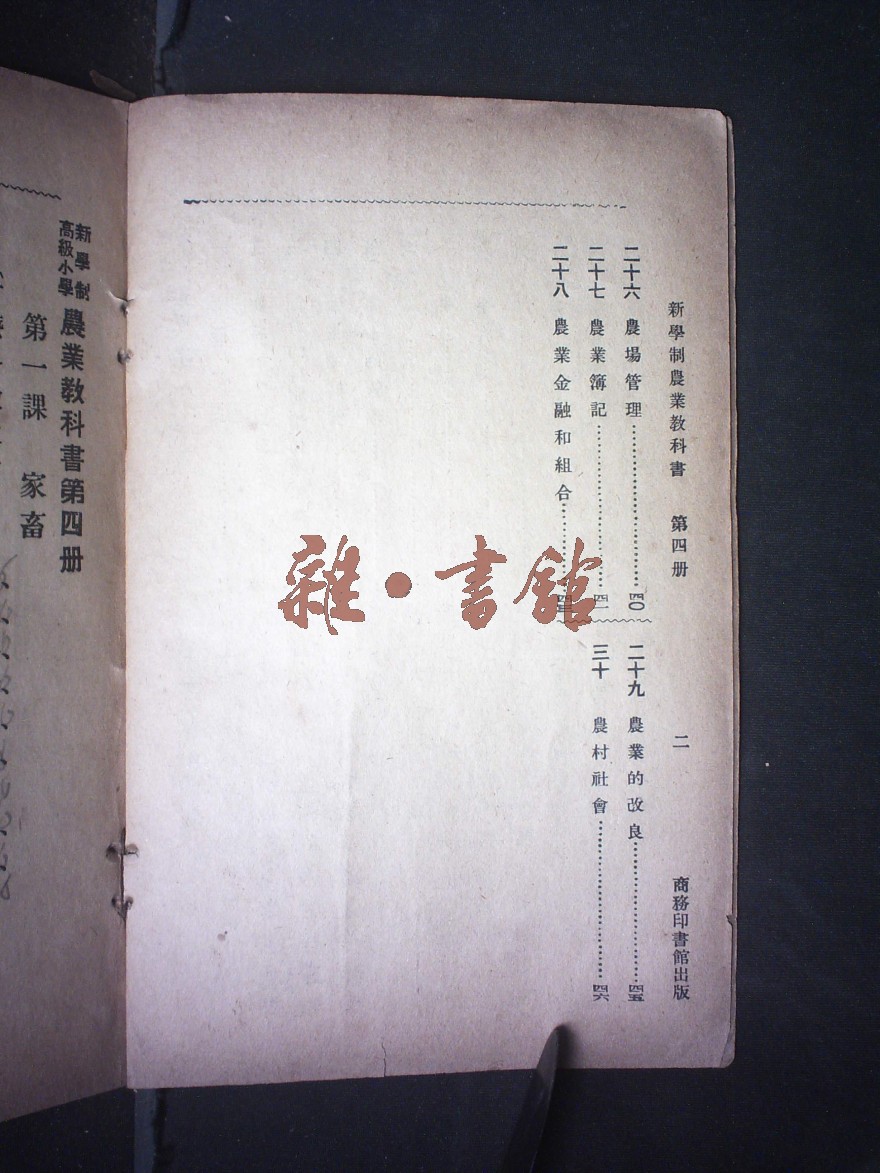 新學制農業教科書 第四册 二 商務印書館出版
二十六 農場管理 四〇
二十七 農業簿記 四一
二十八 農業金融和組合
二十九 農業的改良 四五
三十 農村社會 四六
雜・書館
新學制
高級小學
農業教科書第四册
第一課 家畜